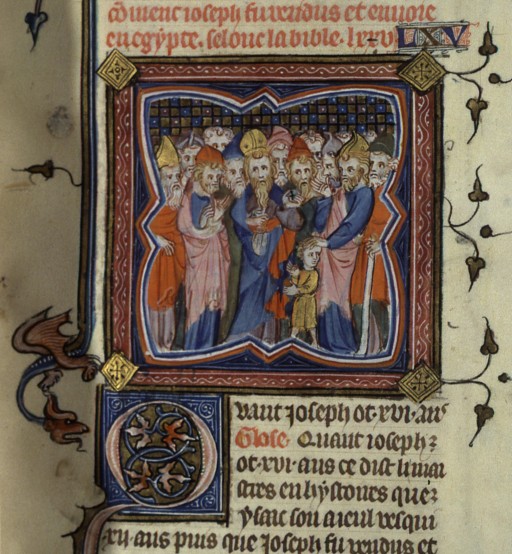 Cōment ioseph fu vendus et enuoie
en egypte. selonc la bible. lxv
LXV
Quant Joseph ot .xvi. ans
Glose. Quant ioseph
ot .xvi. ans ce dist li mai
stres en hystoires que
ysaac son aieul vesqui
.xii. ans puis que Joseph fu vendus et